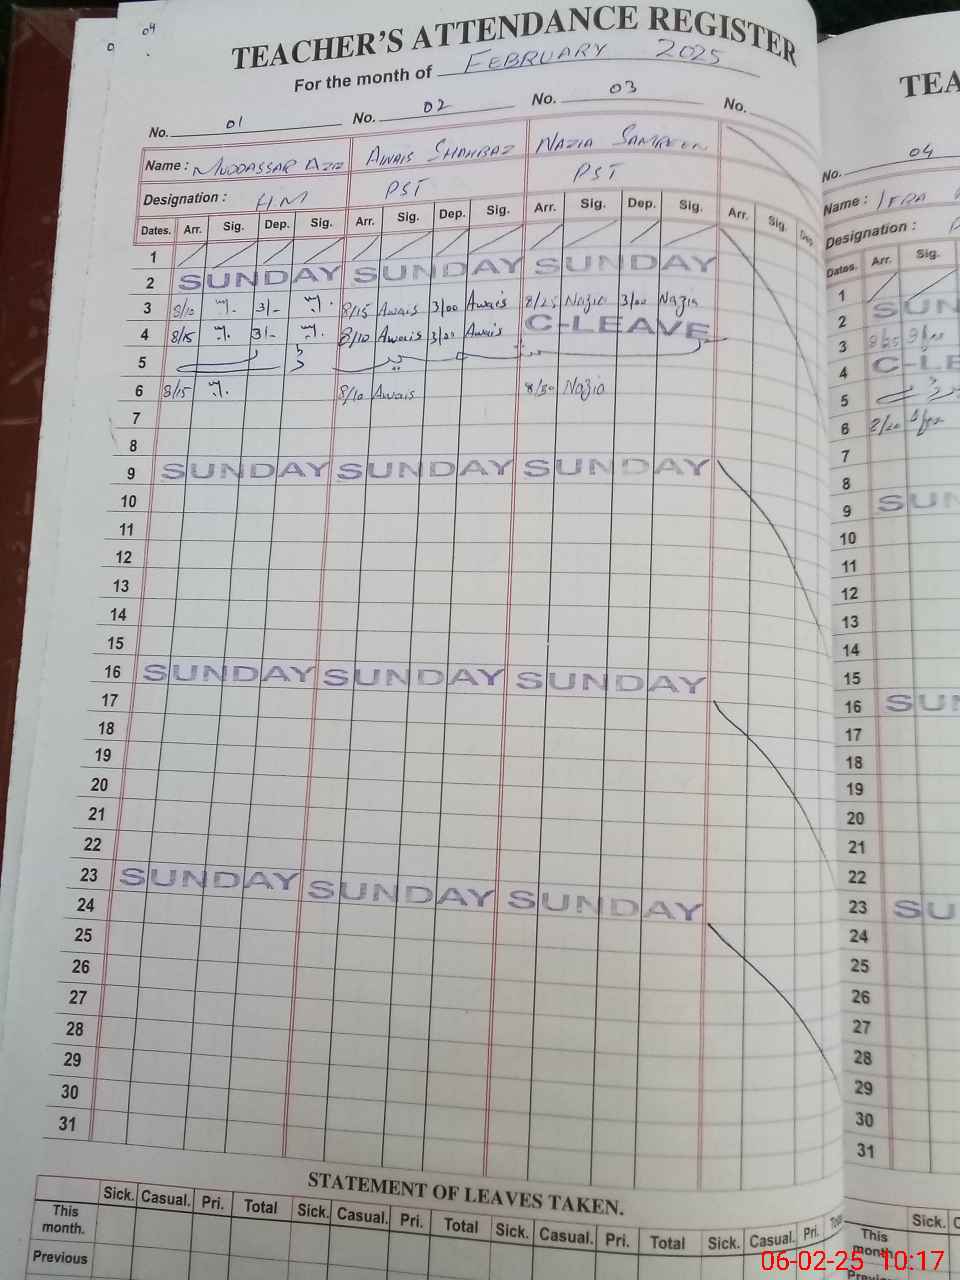 04
TEACHER'S ATTENDANCE REGISTER
For the month of FEBRUARY 2025
No. 01 No. 02 No. 03 No.
Name : MUDDASSAR AZIZ AWAIS SHAHBAZ NAZIA SAMREEN
Designation : HM PST PST
Dates. Arr. Sig. Dep. Sig. Arr. Sig. Dep. Sig. Arr. Sig. Dep. Sig. Arr. Sig. Dep
1
2 SUNDAY SUNDAY SUNDAY
3 8/10 3/- 8/15 Awais 3/00 Awais 8/25 Nazia 3/00 Nazia
4 8/15 3/- 8/10 Awais 3/00 Awais C-LEAVE
5
6 8/15 8/10 Awais 8/30 Nazia
7
8
9 SUNDAY SUNDAY SUNDAY
10
11
12
13
14
15
16 SUNDAY SUNDAY SUNDAY
17
18
19
20
21
22
23 SUNDAY SUNDAY SUNDAY
24
25
26
27
28
29
30
31
STATEMENT OF LEAVES TAKEN.
Sick. Casual. Pri. Total Sick. Casual. Pri. Total Sick. Casual. Pri. Total Sick. Casual. Pri.
This month.
Previous
TEA
No. 04
Name : IFRA
Designation : P
Dates. Arr. Sig.
1
2 SUN
3 8/25
4 C-LE
5
6 8/20
7
8
9 SUN
10
11
12
13
14
15
16 SUN
17
18
19
20
21
22
23 SU
24
25
26
27
28
29
30
31
Sick. C
This month
06-02-25 10:17